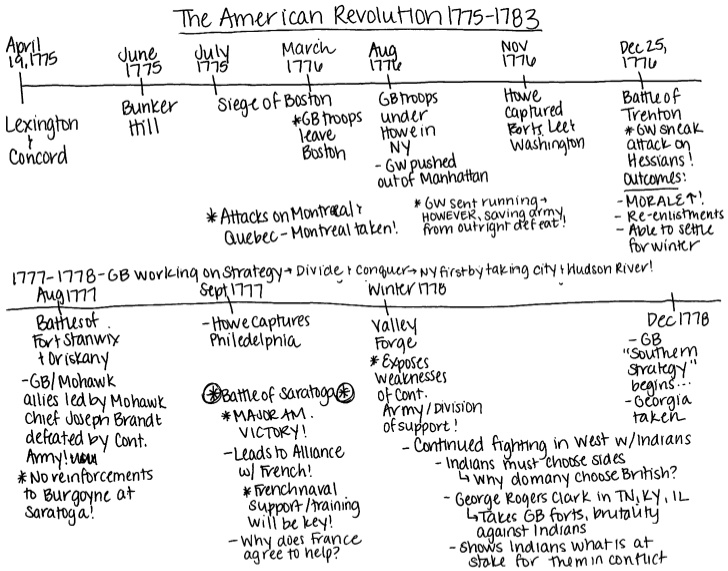 The American Revolution 1775-1783
April
19, 1775
June
1775
July
1775
March
1776
Aug
1776
Nov
1776
Dec 25,
1776
Lexington
+
Concord
Bunker
Hill
Siege of Boston
*GB troops
leave
Boston
GB troops
under
Howe in
NY
- GW pushed
out of Manhattan
Howe
captured
Forts Lee +
Washington
Battle of
Trenton
* GW sneak
attack on
Hessians!
Outcomes:
- MORALE ↑!
- Re-enlistments
- Able to settle
for winter
* Attacks on Montreal +
Quebec - Montreal taken!
* GW sent running →
HOWEVER, saving army
from outright defeat!
1777-1778 - GB working on strategy → Divide + Conquer → NY first by taking city + Hudson River!
Aug 1777
Sept 1777
Winter 1778
Dec 1778
Battles of
Fort Stanwix
+ Oriskany
- GB/Mohawk
allies led by Mohawk
Chief Joseph Brandt
defeated by Cont.
Army!
* No reinforcements
to Burgoyne at
Saratoga!
- Howe captures
Philedelphia
* Battle of Saratoga *
* MAJOR AM.
VICTORY!
- Leads to Alliance
w/ French!
* French naval
support/training
will be key!
- Why does France
agree to help?
Valley
Forge
* Exposes
weaknesses
of Cont.
Army/Division
of support!
- GB
"Southern
Strategy"
begins...
- Georgia
taken
- Continued fighting in West w/ Indians
- Indians must choose sides
↳ Why do many choose British?
- George Rogers Clark in TN, KY, IL
↳ Takes GB forts, brutality
against Indians
- Shows Indians what is at
stake for them in conflict